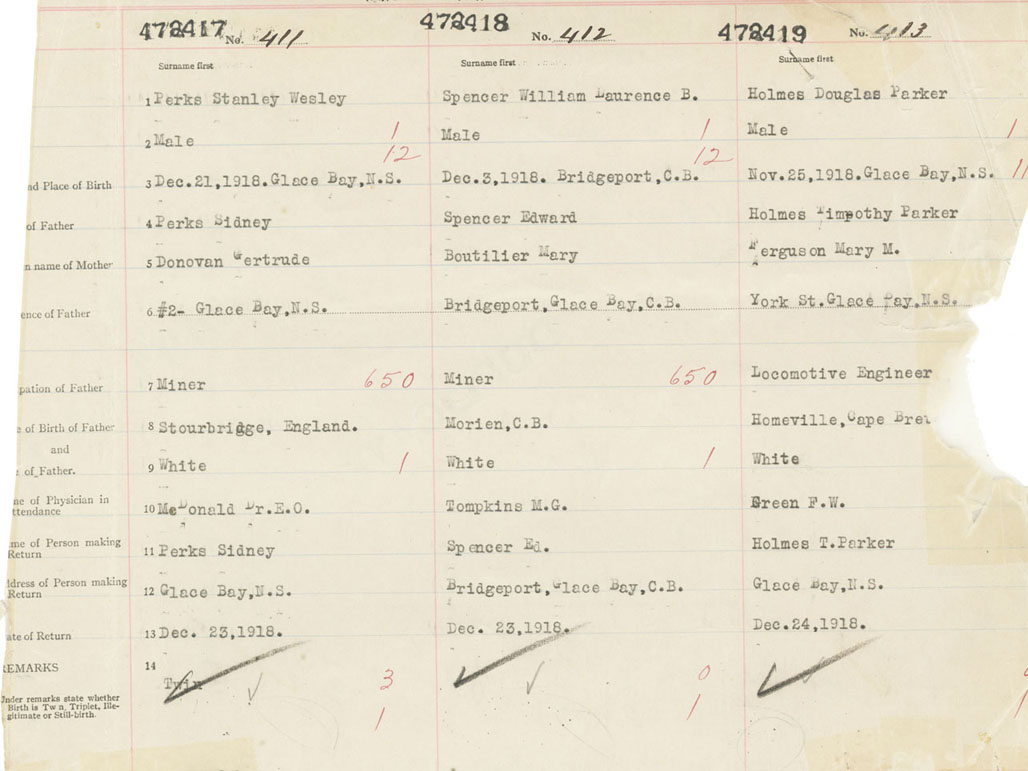 472417 No. 411 472418 No. 412 472419 No. 413
Surname first Surname first Surname first
1 Perks Stanley Wesley Spencer William Laurence B. Holmes Douglas Parker
2 Male 1 Male 1 Male 1
12 12
nd Place of Birth 3 Dec.21,1918.Glace Bay,N.S. Dec.3,1918. Bridgeport,C.B. Nov.25,1918.Glace Bay,N.S. 11
of Father 4 Perks Sidney Spencer Edward Holmes Timpothy Parker
n name of Mother 5 Donovan Gertrude Boutilier Mary Ferguson Mary M.
ence of Father 6 #2- Glace Bay,N.S. Bridgeport,Glace Bay,C.B. York St.Glace Bay,N.S.
pation of Father 7 Miner 650 Miner 650 Locomotive Engineer
e of Birth of Father 8 Stourbridge, England. Morien,C.B. Homeville,Cape Bre
and
of Father. 9 White 1 White 1 White
ne of Physician in
ttendance 10 McDonald Dr.E.O. Tompkins M.G. Green F.W.
me of Person making
Return 11 Perks Sidney Spencer Ed. Holmes T.Parker
ddress of Person making
Return 12 Glace Bay,N.S. Bridgeport,Glace Bay,C.B. Glace Bay,N.S.
ate of Return 13 Dec. 23,1918. Dec. 23,1918. Dec.24,1918.
REMARKS 14
Twin 3 0
Under remarks state whether
Birth is Tw n, Triplet, Ille-
gitimate or Still-birth. 1 1 1